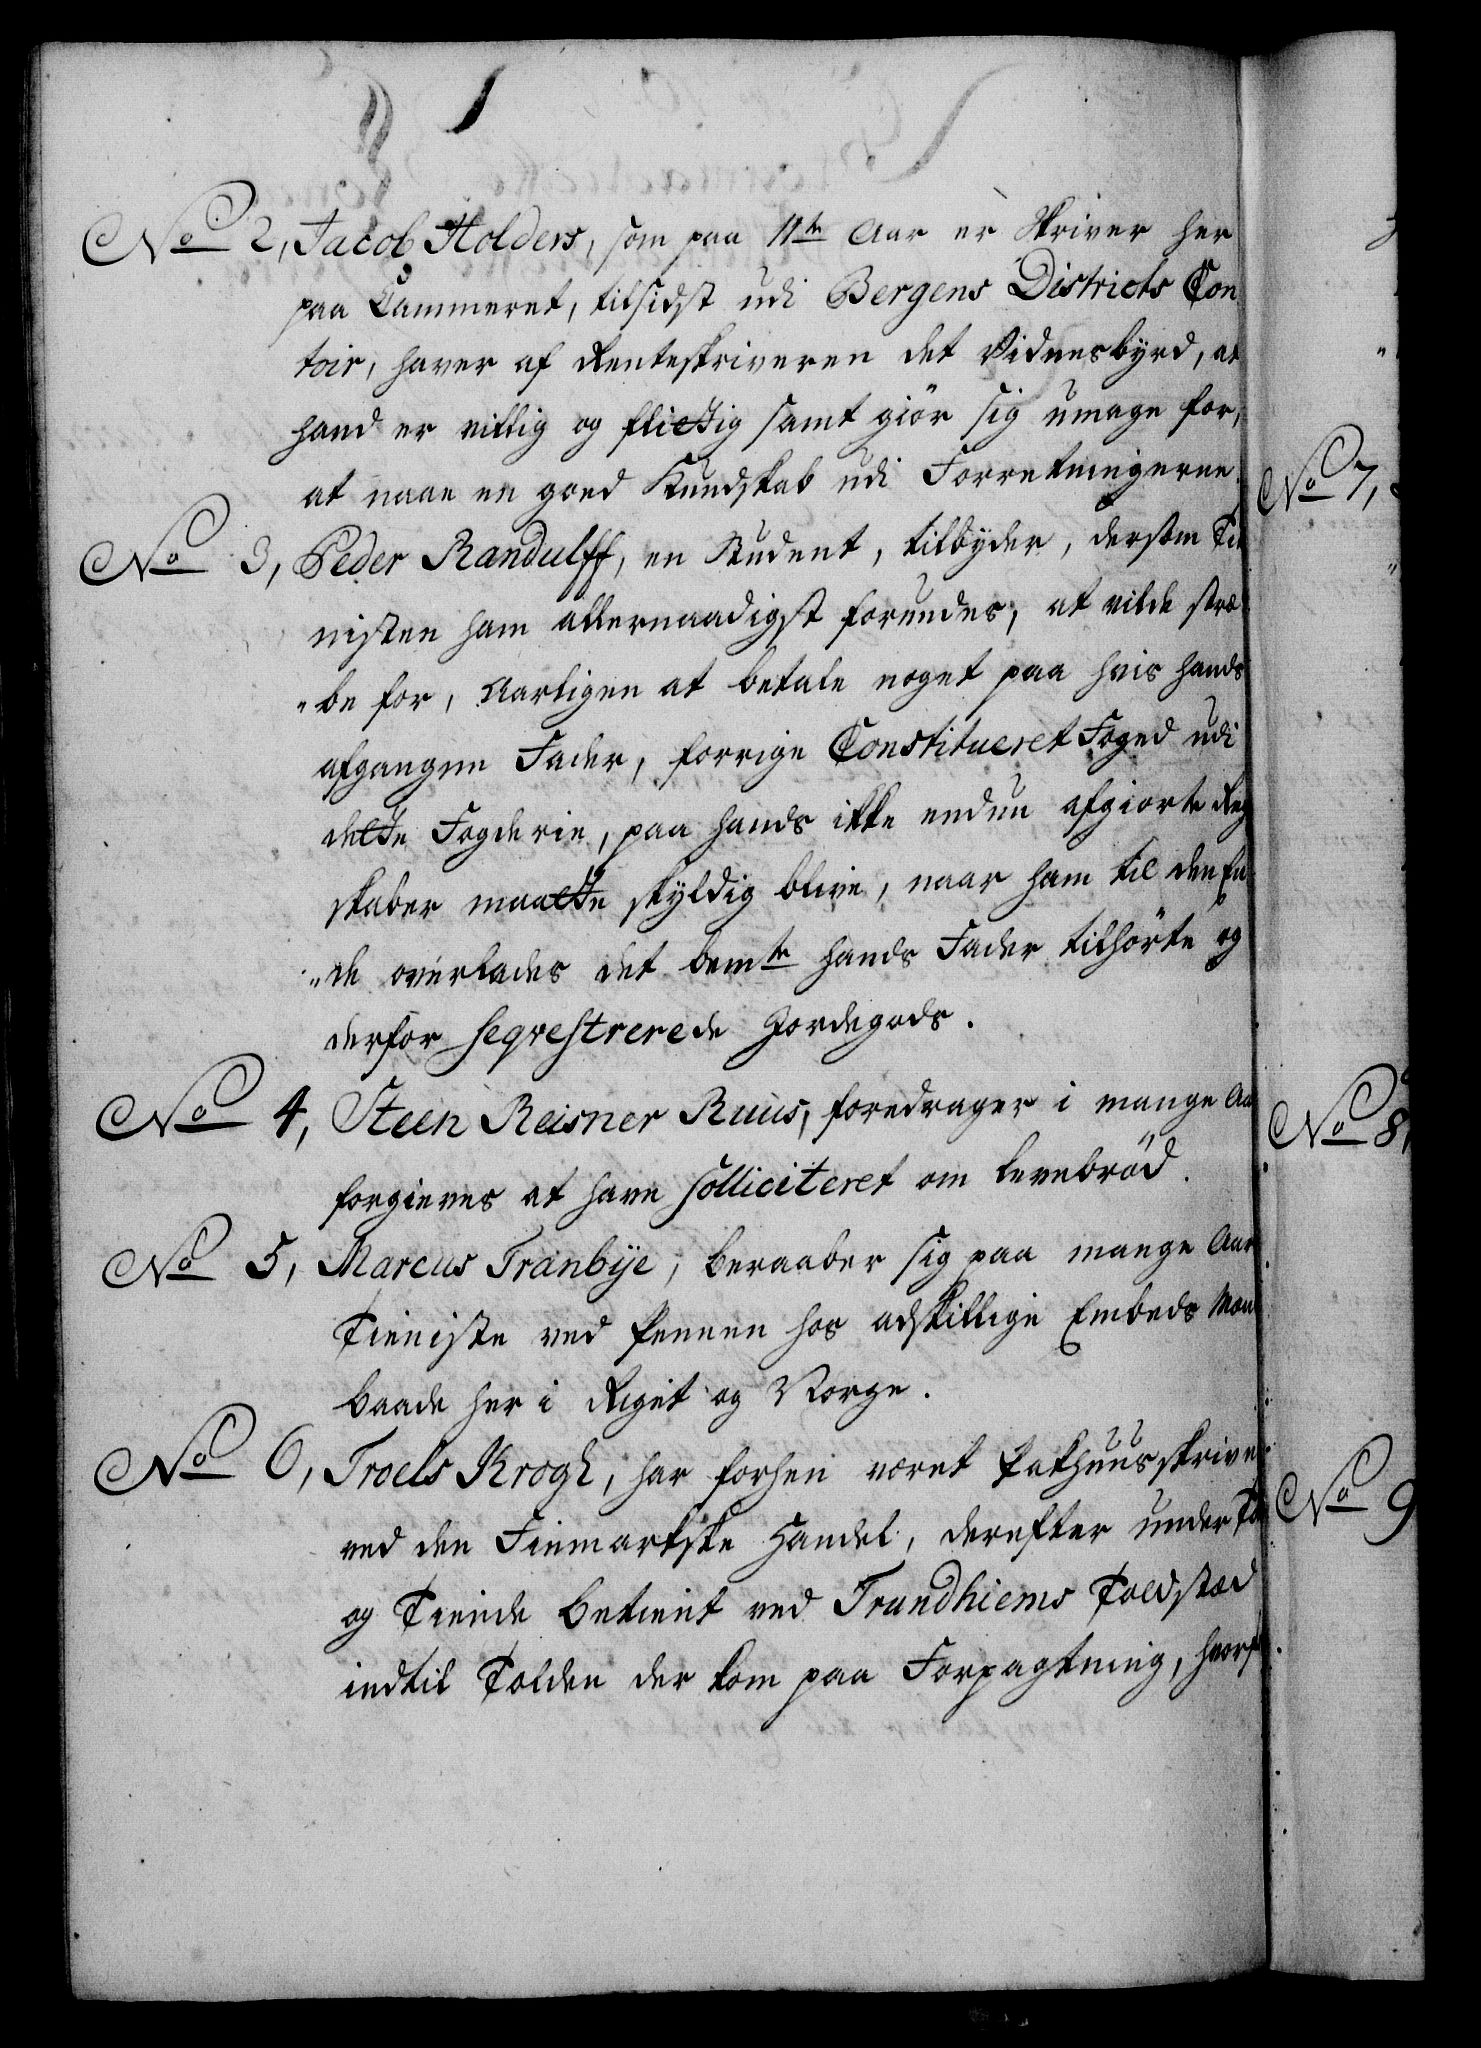 No 2, Jacob Holders, som paa 11te Aar er Skriver her
paa Cammeret, tilsidst udi Bergens Districts Con
toir, haver af Renteskriveren det Vidnesbyrd, at
hand er villig og flittig samt giör sig umage for,
at naae en goed Kundskab udi Forretningerne.
No 3, Peder Randulff, en Student, tilbyder, dersom Tie
nisten ham allernaadigst forundes, at vilde stræ
"be for, Aarligen at betale noget paa hvis hands
afgangne Fader, forrige Constitueret Foged udi
dette Fogderie, paa hands ikke endnu afgiorte Reg
skaber maatte skyldig blive, naar ham til den En
"de overlades det bemte hands Fader tilhörte og
derfor seqvestrerede Jordegods.
No 4, Steen Reisner Ruus, foredrager i mange Aar
forgieves at have solliciteret om levebröd.
No 5, Marcus Tranbye, beraaber sig paa mange Aar
Tieniste ved Pennen hos adskillige Embeds Mæn
baade her i Riget og Norge.
No 6, Troels Krogh, har forhen været Pakhuusskriver
ved den Finmarkske Handel, derefter under Told
og Tiende Betient ved Trundhiems Toldstæd
indtil Tolden der kom paa Forpagtning, hvorf
No 7,
No 8,
No 9